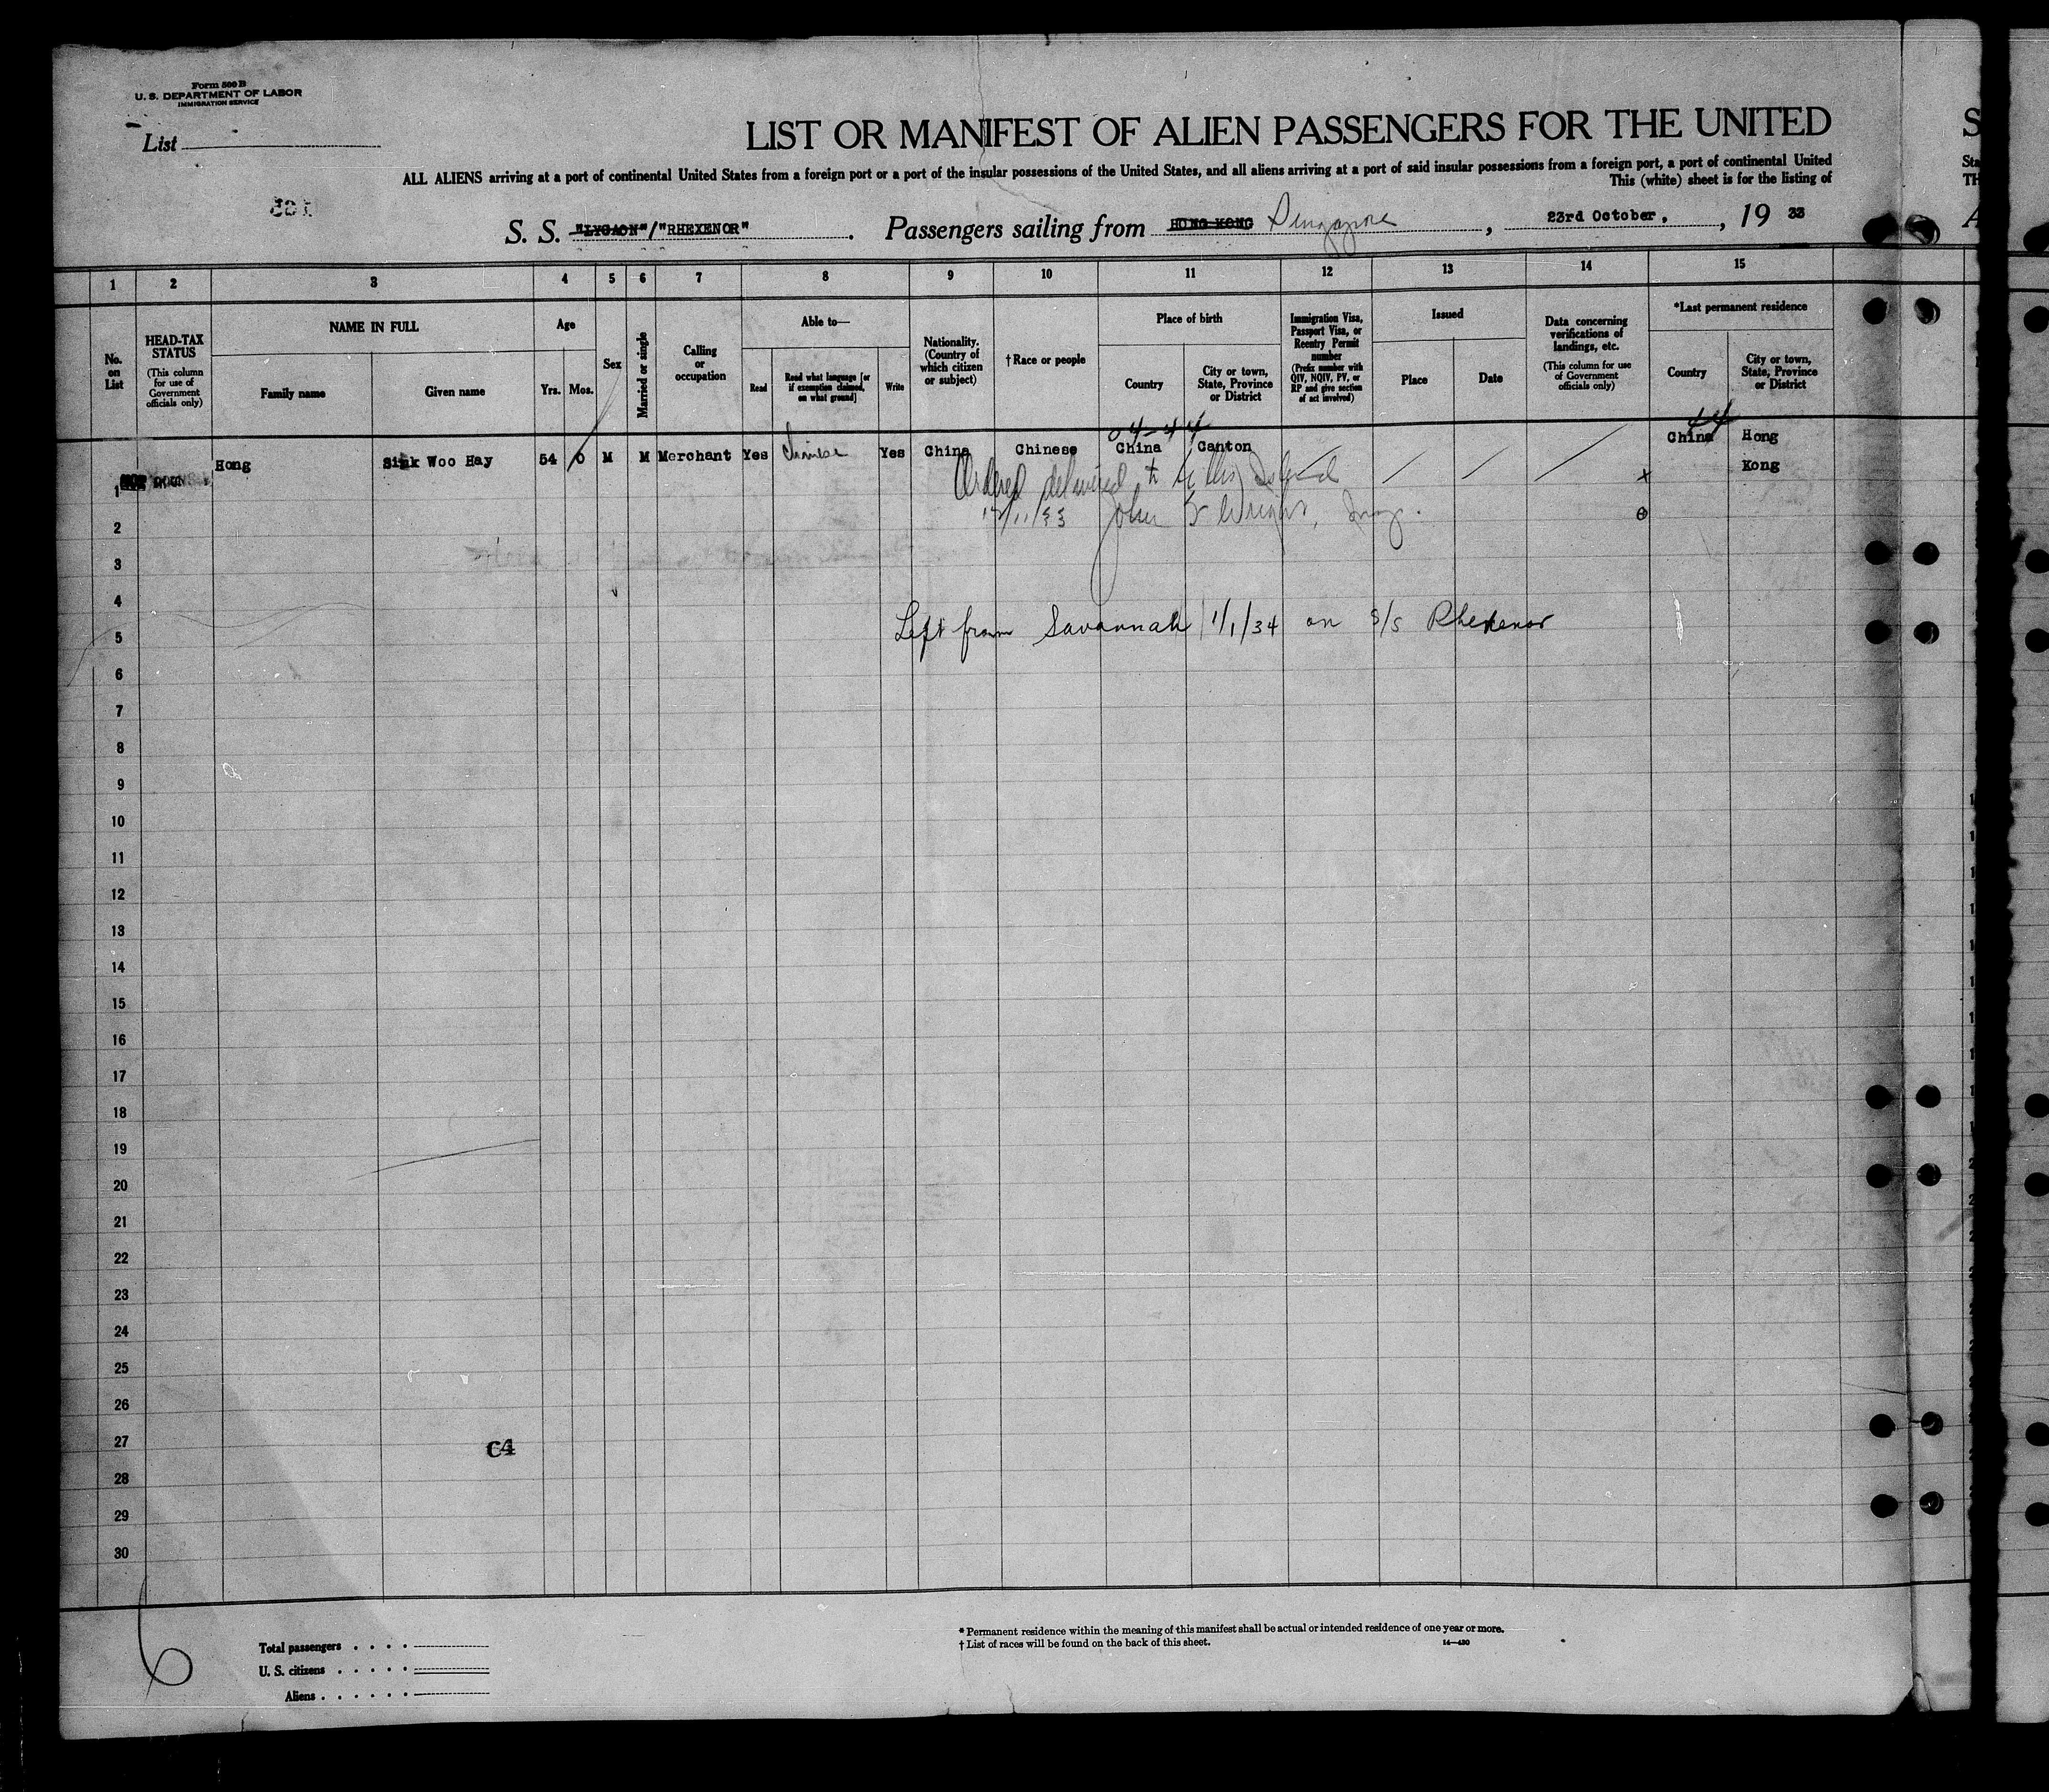 Form 500 B
U. S. DEPARTMENT OF LABOR
IMMIGRATION SERVICE
List
LIST OR MANIFEST OF ALIEN PASSENGERS FOR THE UNITED
ALL ALIENS arriving at a port of continental United States from a foreign port or a port of the insular possessions of the United States, and all aliens arriving at a port of said insular possessions from a foreign port, a port of continental United
This (white) sheet is for the listing of
S. S. "LYCAON"/"RHEXENOR". Passengers sailing from HONG KONG Singapore, 23rd October, , 19 33
1 2 3 4 5 6 7 8 9 10 11 12 13 14 15
No. on List
HEAD-TAX STATUS
(This column for use of Government officials only)
NAME IN FULL
Family name
Given name
Age
Yrs. Mos.
Sex
Married or single
Calling or occupation
Able to—
Read
Read what language [or if exemption claimed, on what ground]
Write
Nationality. (Country of which citizen or subject)
†Race or people
Place of birth
Country
City or town, State, Province or District
Immigration Visa, Passport Visa, or Reentry Permit number
(Prefix number with QIV, NQIV, PV, or RP and give section of act involved)
Issued
Place
Date
Data concerning verifications of landings, etc.
(This column for use of Government officials only)
*Last permanent residence
Country
City or town, State, Province or District
04-44
44
Hong Sink Woo Hay 54 0 M M Merchant Yes Chinese Yes China Chinese China Canton China Hong Kong
Ordered delivered to Ellis Island
John Wright, Insp.
1
2
3
4
Left from Savannah 1/1/34 on S/S Rhexenor
5
6
7
8
9
10
11
12
13
14
15
16
17
18
19
20
21
22
23
24
25
26
27
C4
28
29
30
6
Total passengers . . . .
U. S. citizens . . . . .
Aliens . . . . . .
*Permanent residence within the meaning of this manifest shall be actual or intended residence of one year or more.
†List of races will be found on the back of this sheet.
14—430